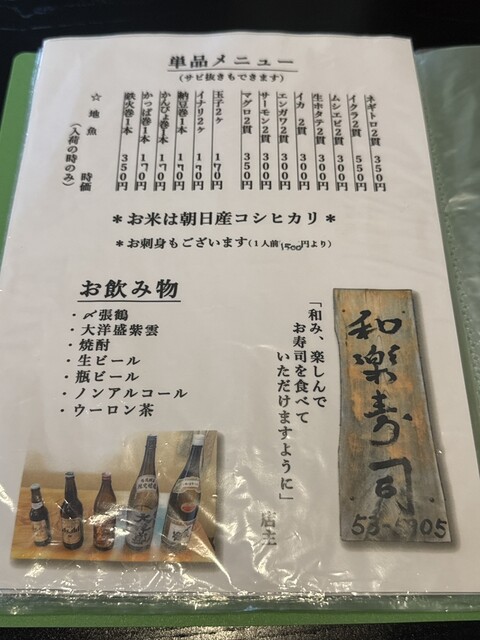 単品メニュー
(サビ抜きもできます)
ネギトロ2貫 350円
イクラ2貫 550円
ムシエビ2貫 300円
生ホタテ2貫 300円
イカ2貫 300円
エンガワ2貫 300円
サーモン2貫 300円
マグロ2貫 350円
玉子2ヶ 170円
イナリ2ヶ 170円
納豆巻1本 170円
かんぴょ巻1本 170円
かっぱ巻1本 170円
鉄火巻1本 350円
☆地魚 時価
(入荷の時のみ)
*お米は朝日産コシヒカリ*
*お刺身もございます(1人前1500円より)
お飲み物
・〆張鶴
・大洋盛紫雲
・焼酎
・生ビール
・瓶ビール
・ノンアルコール
・ウーロン茶
「和み、楽しんで
お寿司を食べて
いただけますように」
店主
和楽寿司
53-5705